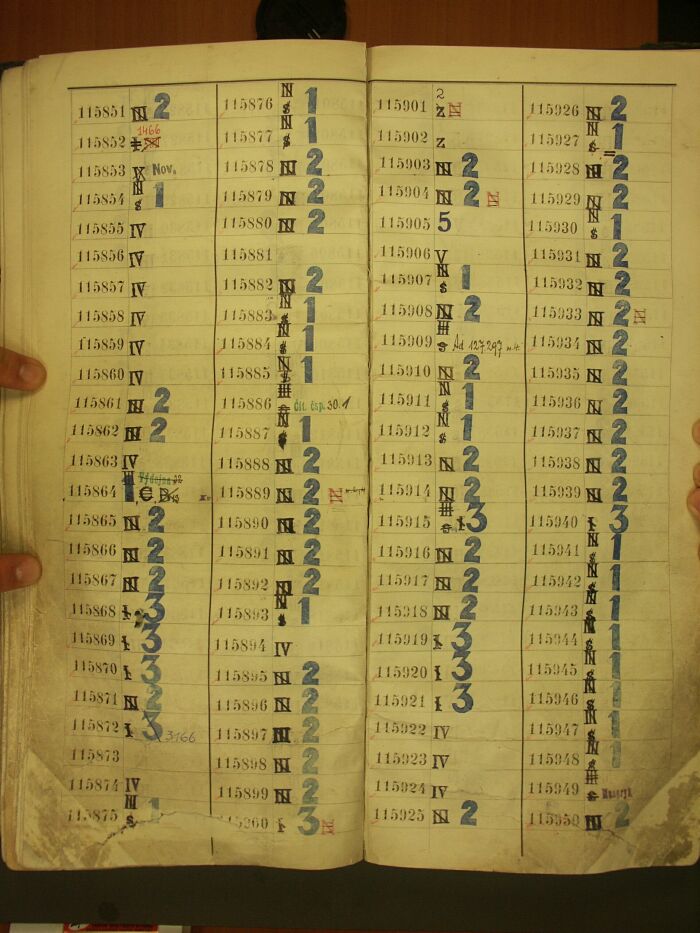 115851 N 2
1466
115852 I
115853 X Nov.
115854 N S 1
115855 IV
115856 IV
115857 IV
115858 IV
115859 IV
115860 IV
115861 N 2
115862 N 2
115863 IV
Výdejna
115864 € D
115865 N 2
115866 N 2
115867 N 2
115868 I 3
115869 I 3
115870 I 3
115871 N 2
115872 I 3 3166
115873
115874 IV
115875 N S 1
115876 N S 1
115877 N S 1
115878 N 2
115879 N 2
115880 N 2
115881
115882 N 2
115883 N S 1
115884 N S 1
115885 N S 1
115886 Čít. čsp. 30.1
115887 N S 1
115888 N 2
115889 N 2
115890 N 2
115891 N 2
115892 N 2
115893 N S 1
115894 IV
115895 N 2
115896 N 2
115897 N 2
115898 N 2
115899 N 2
115900 I 3
2
115901 Z
115902 Z
115903 N 2
115904 N 2
115905 5
115906 V
115907 N S 1
115908 N 2
115909 Ad 127.297
115910 N 2
115911 N S 1
115912 N S 1
115913 N 2
115914 N 2
115915 I 3
115916 N 2
115917 N 2
115918 N 2
115919 I 3
115920 I 3
115921 I 3
115922 IV
115923 IV
115924 IV
115925 N 2
115926 N 2
115927 N S 1
115928 N 2
115929 N 2
115930 N S 1
115931 N 2
115932 N 2
115933 N 2
115934 N 2
115935 N 2
115936 N 2
115937 N 2
115938 N 2
115939 N 2
115940 I 3
115941 N S 1
115942 N S 1
115943 N S 1
115944 N S 1
115945 N S 1
115946 N S 1
115947 N S 1
115948 N S 1
115949 Masaryk
115950 N 2